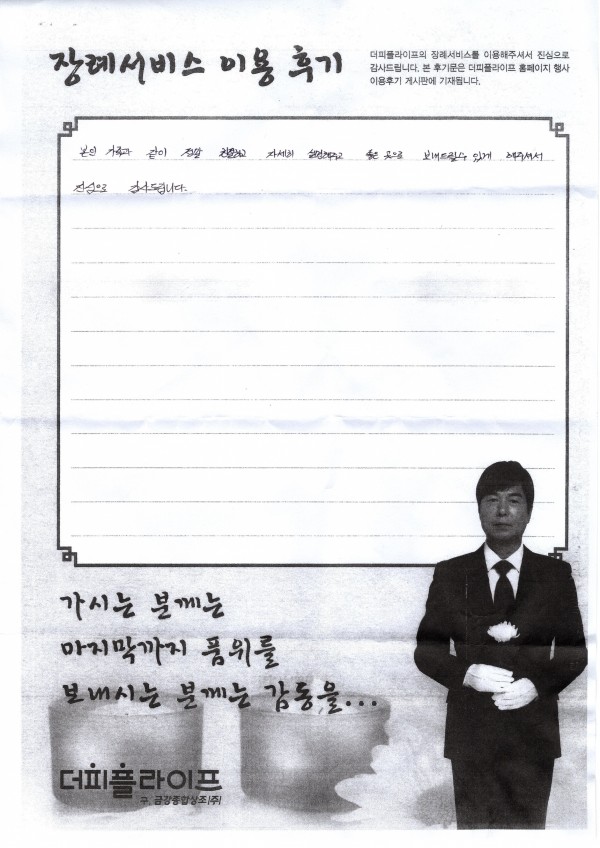 장례서비스 이용 후기
더피플라이프의 장례서비스를 이용해주셔서 진심으로
감사드립니다. 본 후기문은 더피플라이프 홈페이지 행사
이용후기 게시판에 기재됩니다.
본인 가족과 같이 정말 친절하고 자세히 설명해주고 좋은 곳으로 보내드릴수 있게 해주셔서
진심으로 감사드립니다.
가시는 분께는
마지막까지 품위를
보내시는 분께는 감동을...
더피플라이프
구. 금강종합상조(주)